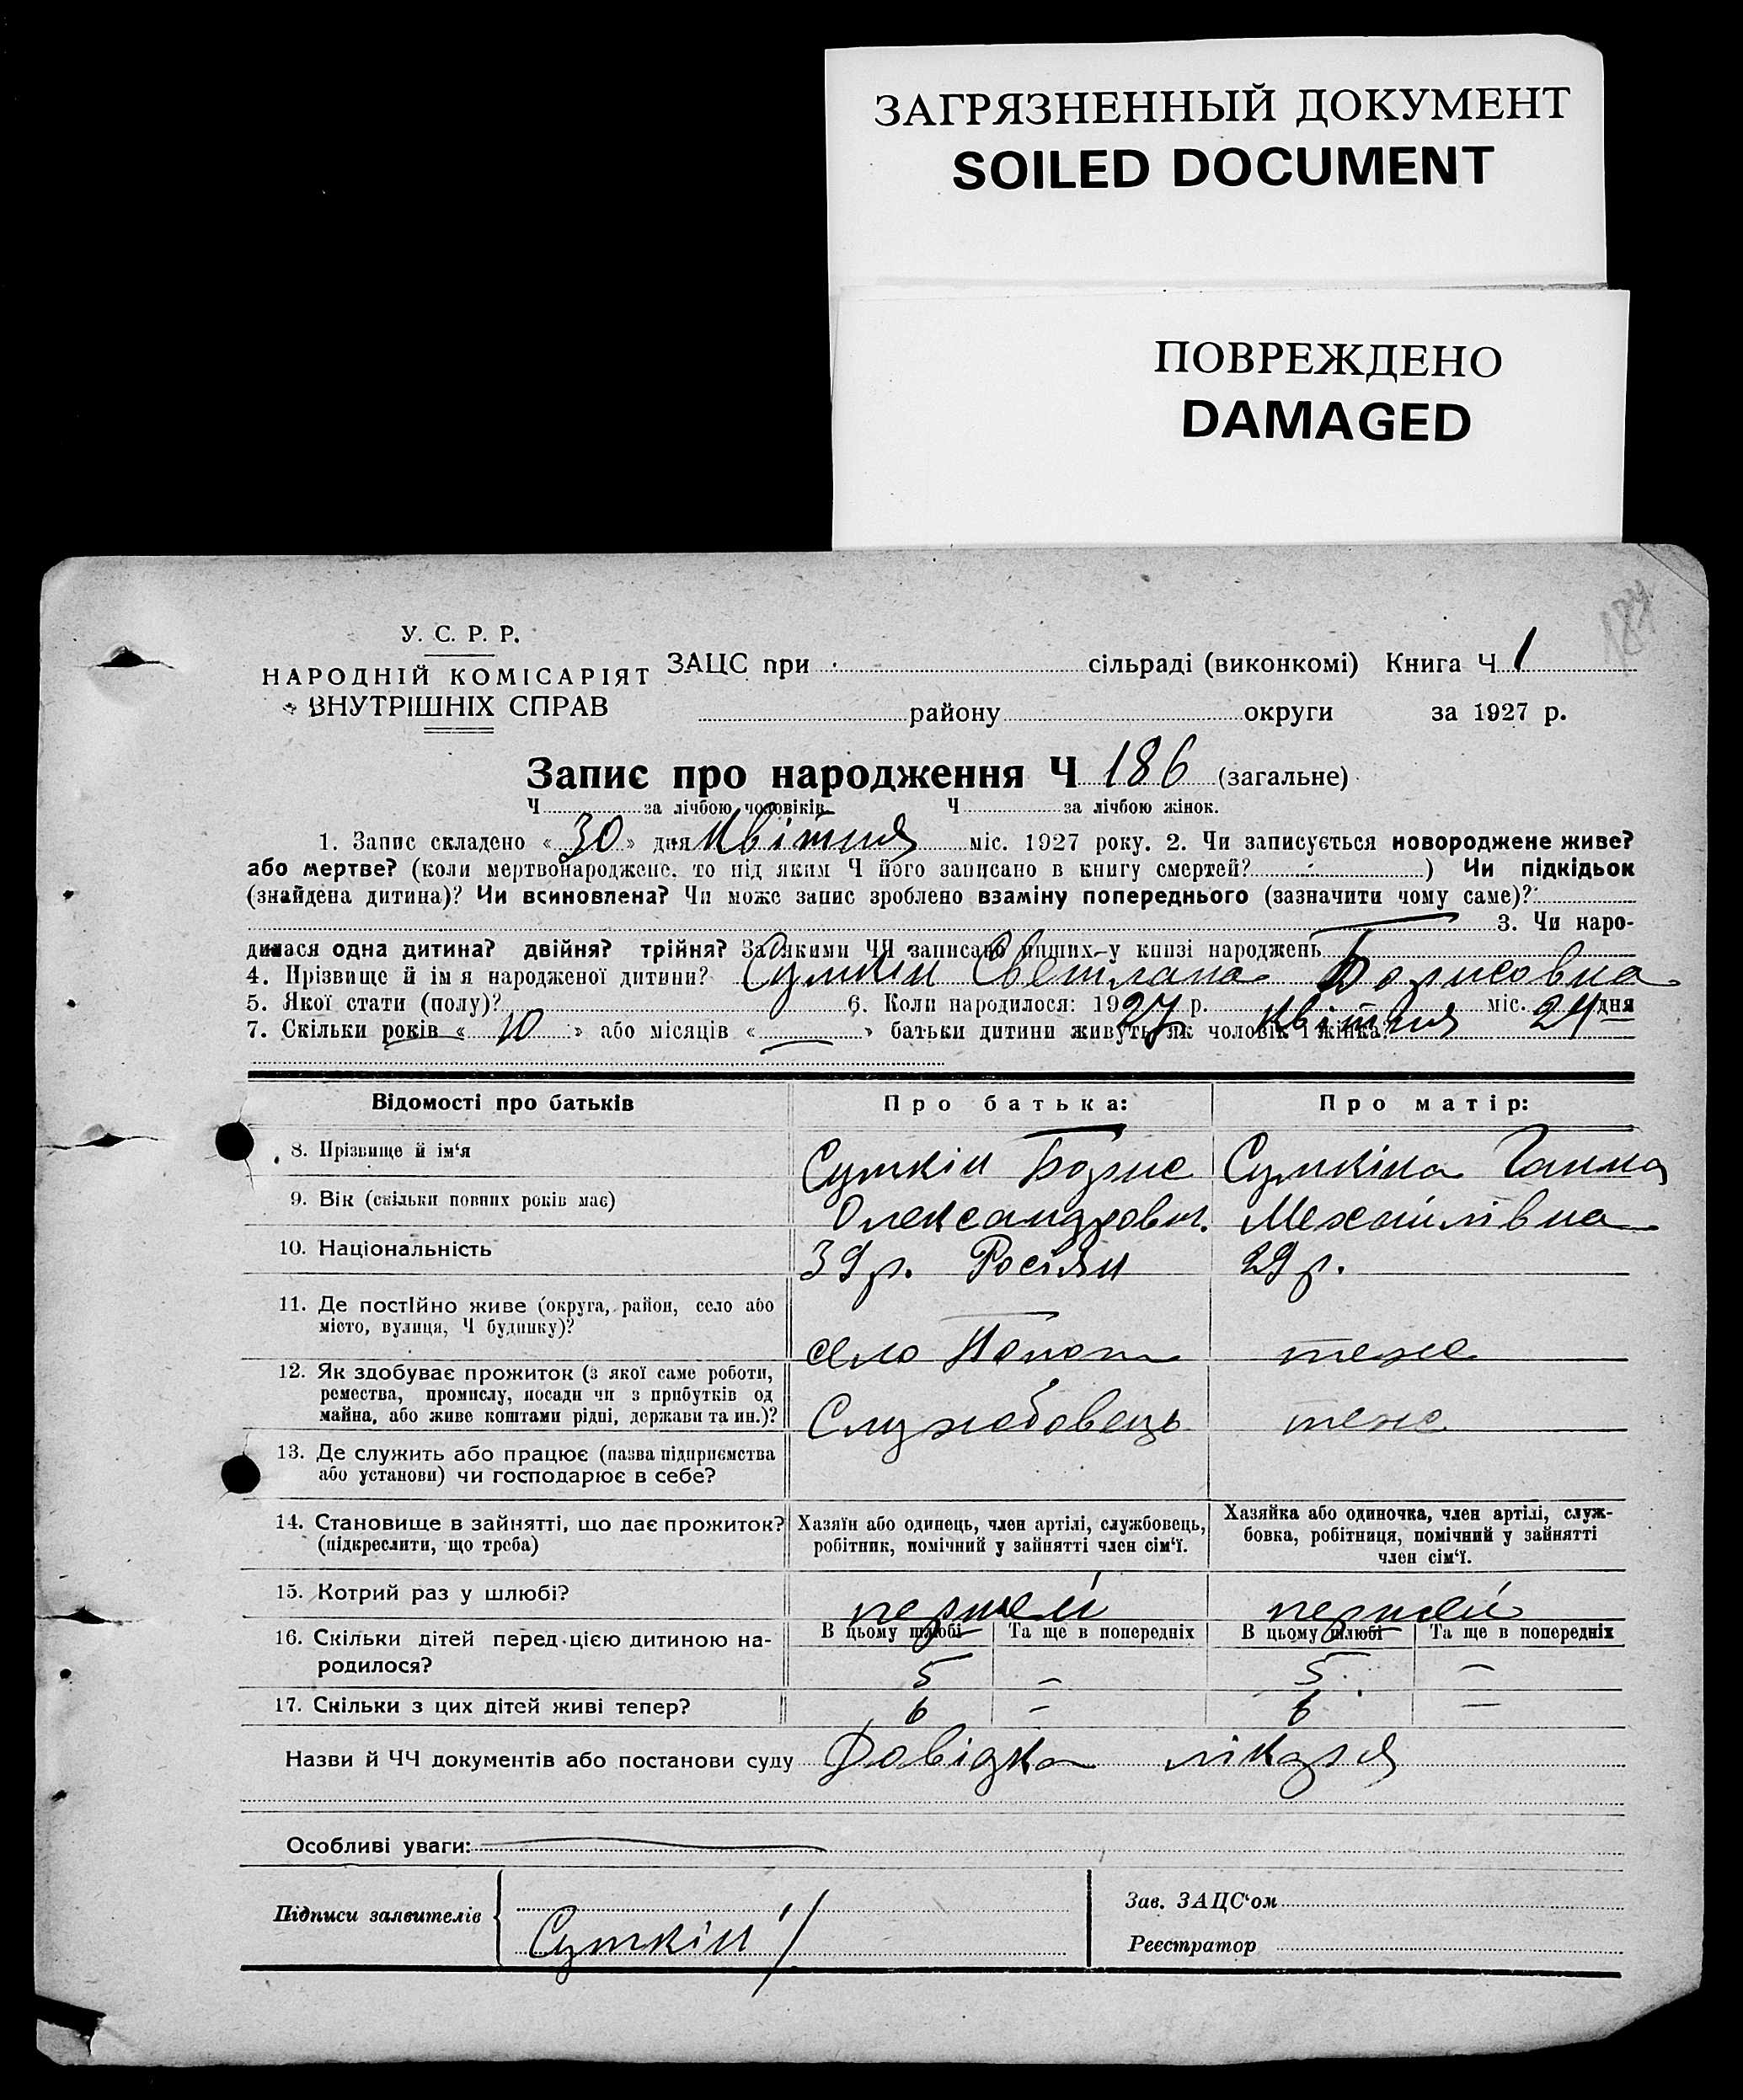 ЗАГРЯЗНЕННЫЙ ДОКУМЕНТ
SOILED DOCUMENT
ПОВРЕЖДЕНО
DAMAGED
У. С. Р. Р.
НАРОДНІЙ КОМІСАРІЯТ
ВНУТРІШНІХ СПРАВ
ЗАЦС при сільраді (виконкомі) Книга Ч 1
району округи за 1927 р.
Запис про народження Ч 186 (загальне)
Ч за лічбою чоловіків Ч за лічбою жінок.
1. Запис складено «30» дня Квітня міс. 1927 року. 2. Чи записується новороджене живе?
або мертве? (коли мертвонароджене, то під яким Ч його записано в книгу смертей? ) Чи підкідьок
(знайдена дитина)? Чи всиновлена? Чи може запис зроблено взаміну попереднього (зазначити чому саме)?
3. Чи наро-
дилася одна дитина? двійня? трійня? За якими ЧЯ записано инших у книзі народжень
4. Прізвище й ім я народженої дитини? Сумкін Светлана Борисовна
5. Якої стати (полу)? 6. Коли народилося: 1927 р. Квітня міс. 24 дня
7. Скільки років «10» або місяців « — » батьки дитини живуть як чоловік і жінка?
Відомості про батьків Про батька: Про матір:
8. Прізвище й ім‘я Суткін Борис Сумкіна Ганна
9. Вік (скільки повних років має) Олександрович. Механлівна
10. Національність 39 р. Росіян 29 р.
11. Де постійно живе (округа, район, село або
місто, вулиця, Ч будинку)? село теже
12. Як здобуває прожиток (з якої саме роботи,
ремества, промислу, посади чи з прибутків од
майна, або живе коштами рідні, держави та ин.)? Службовець теже
13. Де служить або працює (назва підприємства
або установи) чи господарює в себе?
14. Становище в зайнятті, що дає прожиток?
(підкреслити, що треба)
Хазяїн або одинець, член артілі, службовець,
робітник, помічний у зайнятті член сім‘ї.
Хазяйка або одиночка, член артілі, служ-
бовка, робітниця, помічний у зайнятті
член сім‘ї.
15. Котрий раз у шлюбі? першей першей
В цьому шлюбі Та ще в попередніх В цьому шлюбі Та ще в попередніх
16. Скільки дітей перед цією дитиною на-
родилося? 5 – 5 –
17. Скільки з цих дітей живі тепер? 6 – 6 –
Назви й ЧЧ документів або постанови суду Довідка лікаря
Особливі уваги:
Підписи заявителів Суткін
Зав. ЗАЦС‘ом
Реєстратор